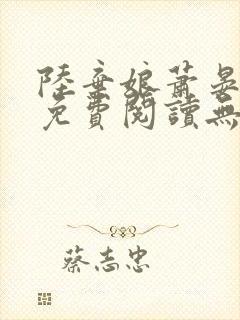 陸棄娘蕭晏
免費閱讀無
蔡志忠